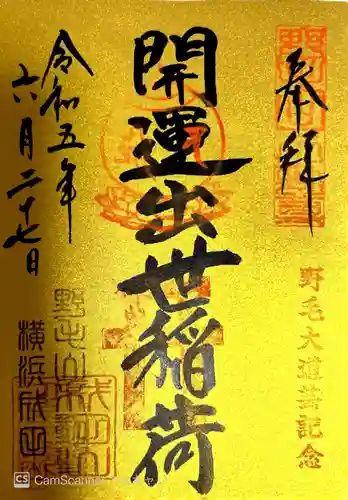 奉拝
野毛大道芸記念
開運出世稲荷
令和五年
六月二十七日
野毛山不動尊
横浜成田山
CS CamScanner